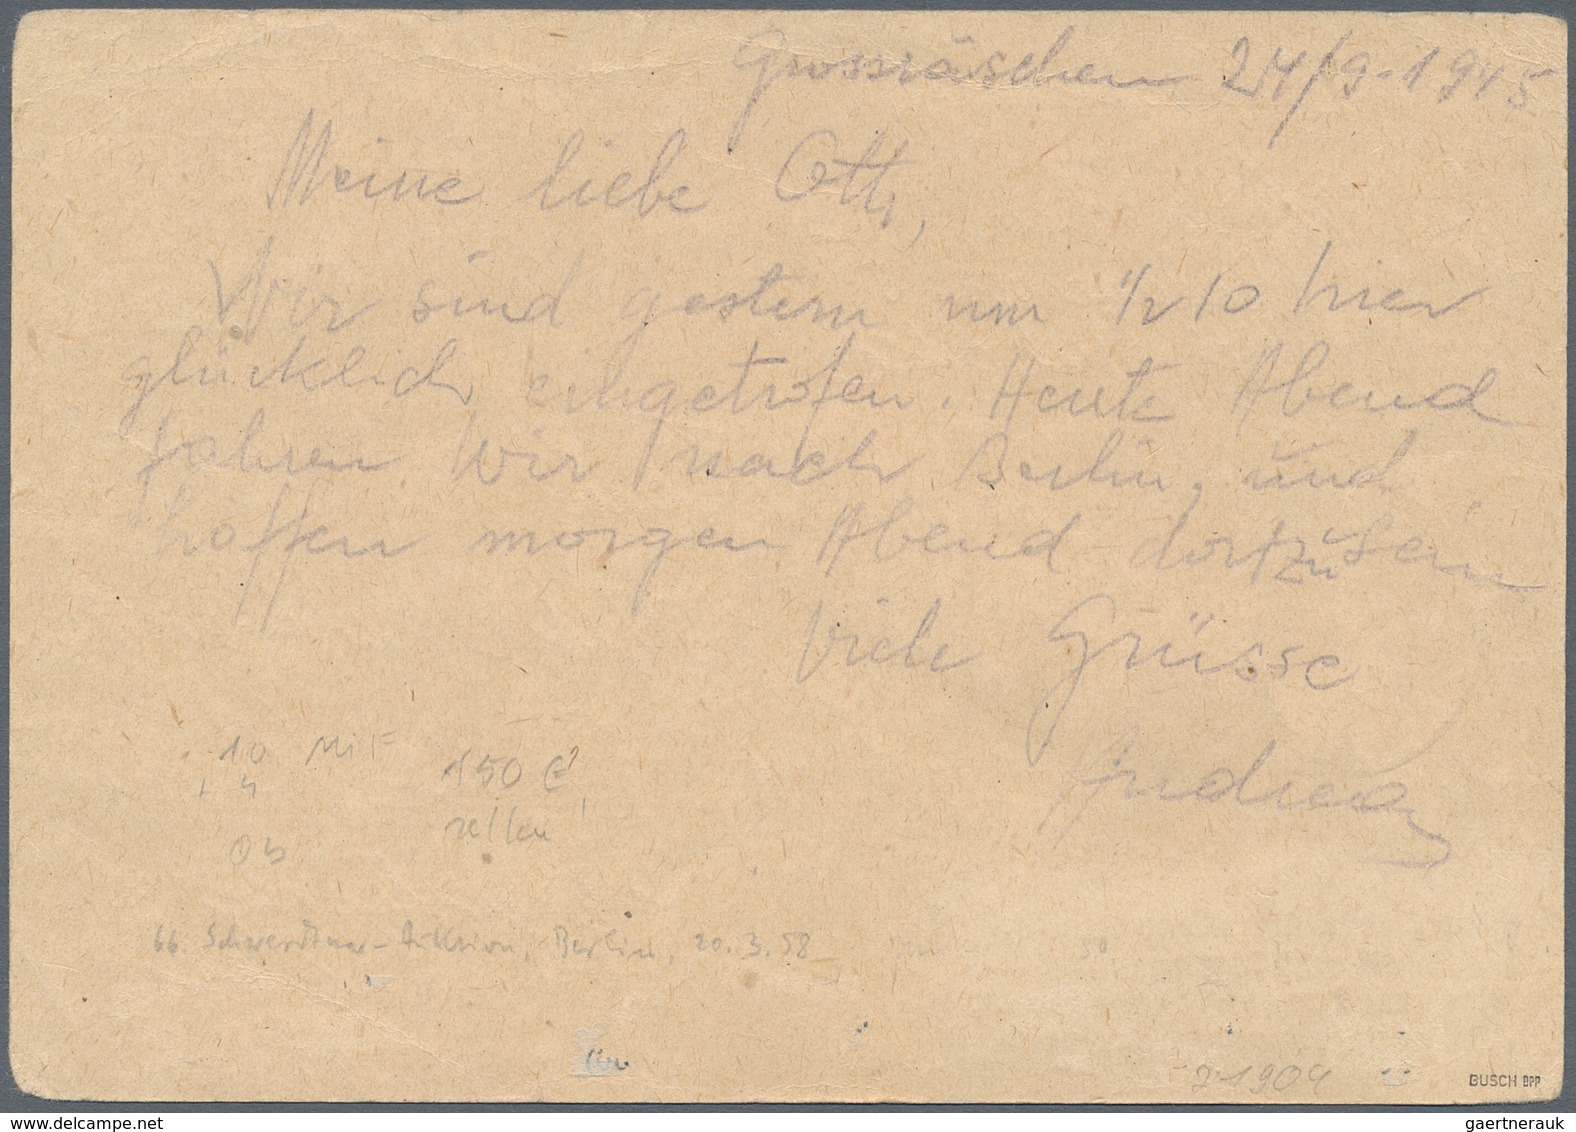 Grossräschen 24/9.1945
Meine liebe Otti,
Wir sind gestern um 1/2 10 hier
glücklich eingetrofen. Heute Abend
fahren Wir nach Berlin, und
hoffen morgen Abend dortzusein
Viele Grüsse
Andreas
10 MiF
150 €
+ 4
selten!
66. Schwerdtner-Auktion, Berlin, 20.3.58
21904
BUSCH BPP
www.delcampe.net
gaertnerauk